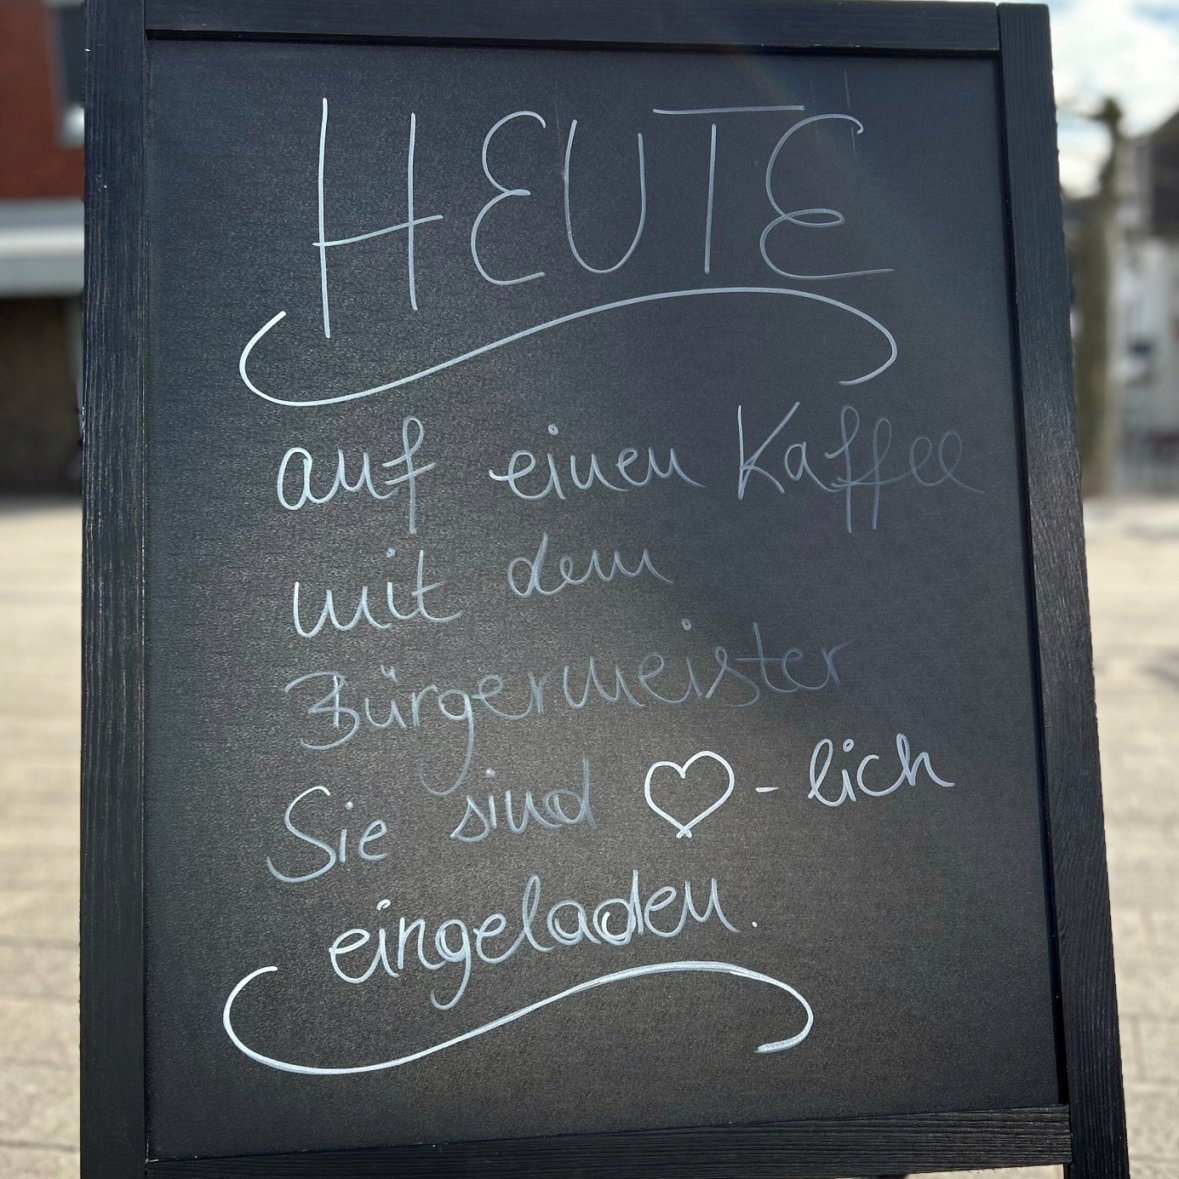 HEUTE
auf einen Kaffee
mit dem
Bürgermeister
Sie sind ♡-lich
eingeladen.